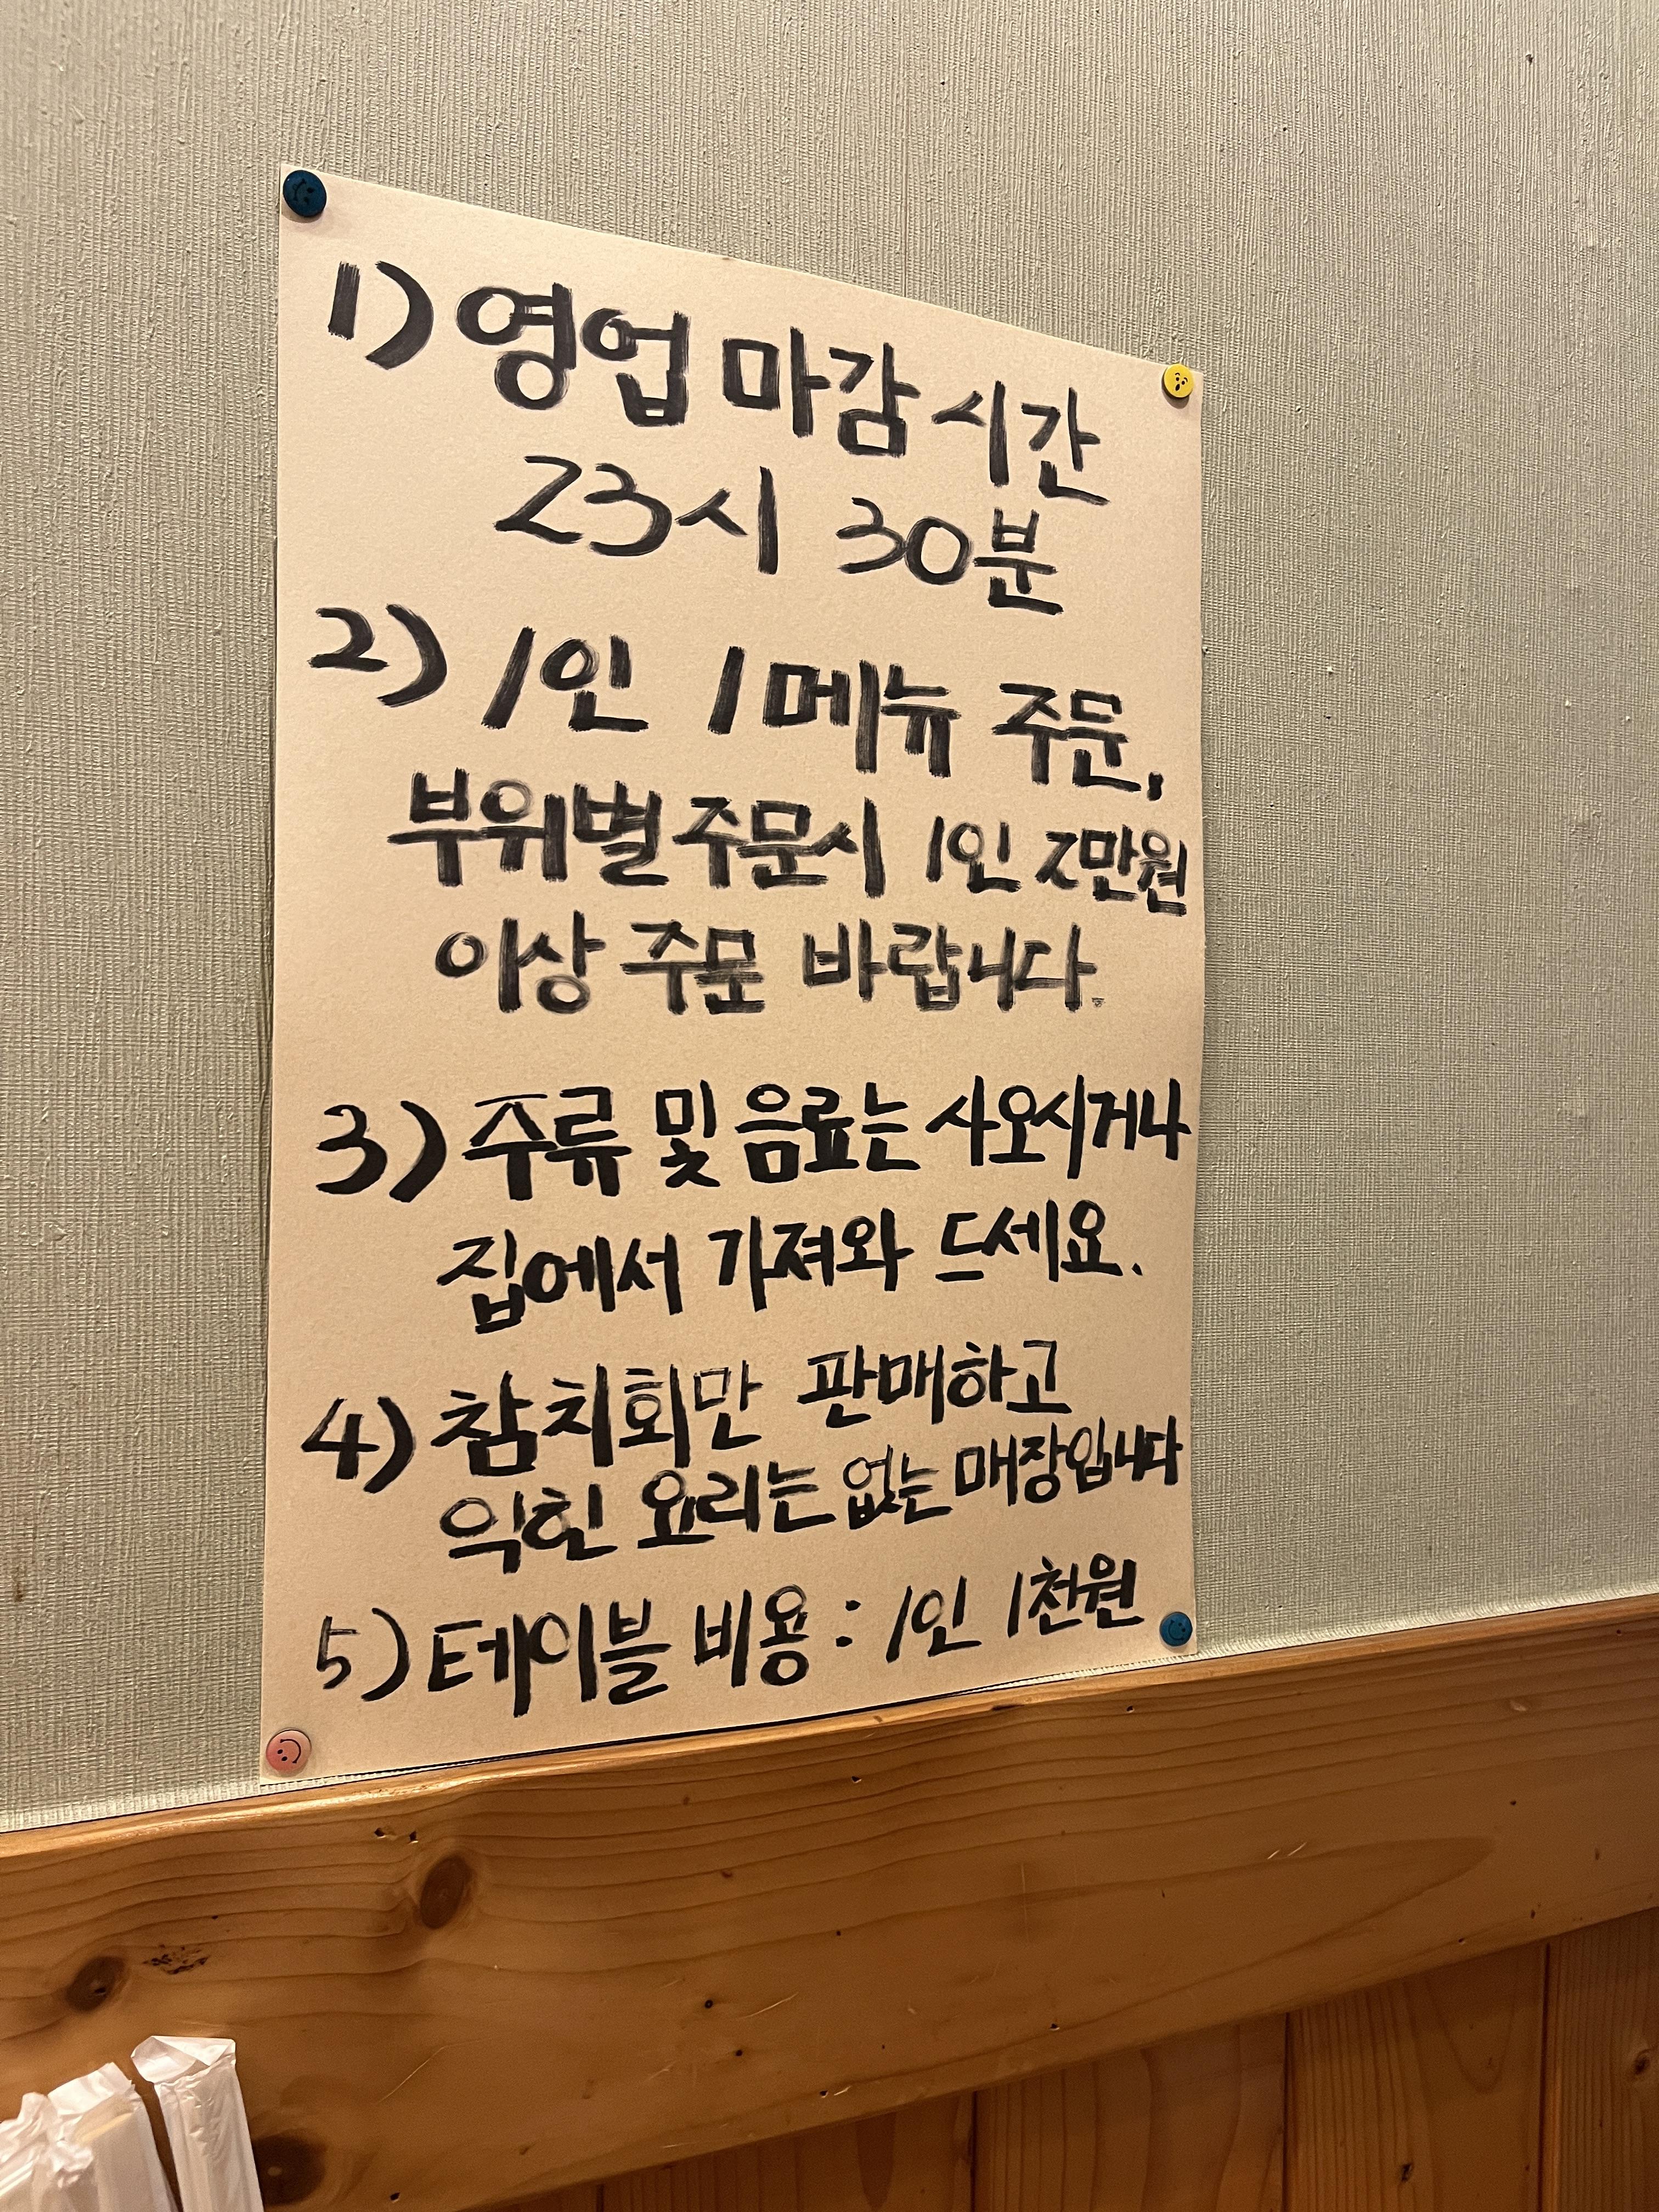 1) 영업 마감 시간
23시 30분
2) 1인 1메뉴 주문,
부위별 주문시 1인 2만원
이상 주문 바랍니다.
3) 주류 및 음료는 사오시거나
집에서 가져와 드세요.
4) 참치회만 판매하고
익힌 요리는 없는 매장입니다
5) 테이블 비용 : 1인 1천원